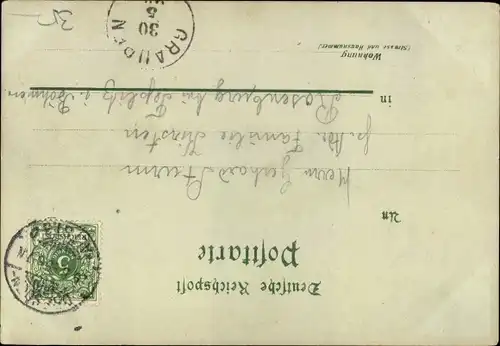 Deutsche Reichspost
Postkarte
An
Herrn Gerhard Sturm
p. Adr. Familie Kirsten
in Rosenburg bei Teplitz i. Böhmen
Wohnung
(Strasse und Hausnummer)
GRAUDEN
30
5
5
35-